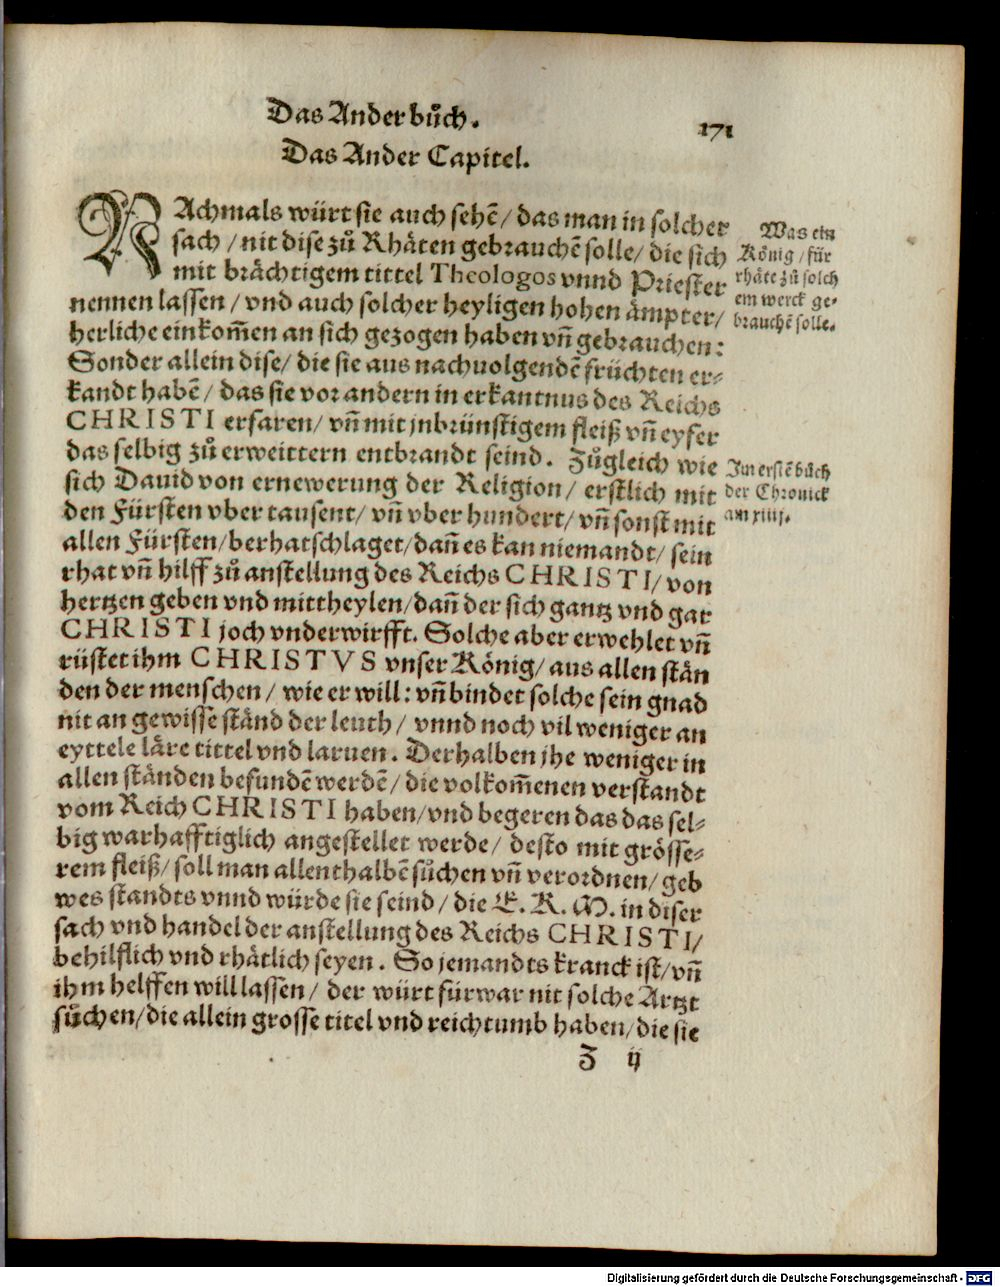 Das Ander bůch.
171
Das Ander Capitel.
NAchmals würt sie auch sehē / das man in solcher
sach / nit dise zů Rhäten gebrauchē solle / die sich
mit brächtigem tittel Theologos vnnd Priester
nennen lassen / vnd auch solcher heyligen hohen ämpter /
herliche einkom̄en an sich gezogen haben vn̄ gebrauchen:
Sonder allein dise / die sie aus nachuolgendē früchten er⸗
kandt habē / das sie vor andern in erkantnus des Reichs
CHRISTI erfaren / vn̄ mit jnbrünstigem fleiß vn̄ eyfer
das selbig zů erweittern entbrandt seind. Zůgleich wie
sich Dauid von ernewerung der Religion / erstlich mit
den Fürsten vber tausent / vn̄ vber hundert / vn̄ sonst mit
allen Fürsten / berhatschlaget / dan̄ es kan niemandt / sein
rhat vn̄ hilff zů anstellung des Reichs CHRISTI / von
hertzen geben vnd mittheylen / dan̄ der sich gantz vnd gar
CHRISTI joch vnderwirfft. Solche aber erwehlet vn̄
rüstet ihm CHRISTVS vnser König / aus allen stän
den der menschen / wie er will: vn̄ bindet solche sein gnad
nit an gewisse ständ der leuth / vnnd noch vil weniger an
eyttele läre tittel vnd laruen. Derhalben jhe weniger in
allen ständen befundē werdē / die volkom̄enen verstandt
vom Reich CHRISTI haben / vnd begeren das das sel⸗
big warhafftiglich angestellet werde / desto mit grösse⸗
rem fleiß / soll man allenthalbē sůchen vn̄ verordnen / geb
wes standts vnnd würde sie seind / die E. K. M. in diser
sach vnd handel der anstellung des Reichs CHRISTI /
behilflich vnd rhätlich seyen. So jemandts kranck ist / vn̄
ihm helffen will lassen / der würt fürwar nit solche Artzt
sůchen / die allein grosse titel vnd reichtumb haben / die sie
Z ij
Was ein
König / für
rhäte zů solch
em werck ge⸗
brauchē solle.
Im erstē bůch
der Chronick
am xiij.
Digitalisierung gefördert durch die Deutsche Forschungsgemeinschaft - DFG